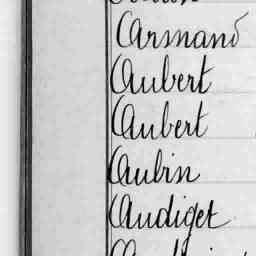 Armand
Aubert
Aubert
Aubin
Audiget